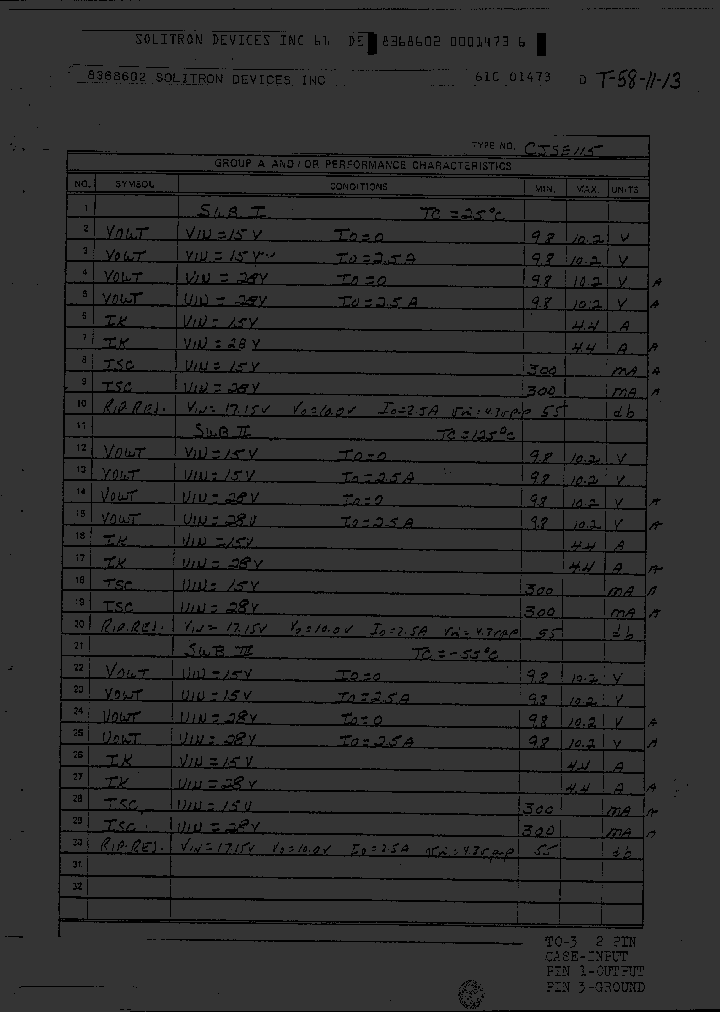 SOLITRON DEVICES INC 61 DE 8368602 0001473 6
8368602 SOLITRON DEVICES, INC 61C 01473 D T-58-11-13
TYPE NO. CJSE115
GROUP A AND/OR PERFORMANCE CHARACTERISTICS
NO. SYMBOL CONDITIONS MIN. MAX. UNITS
1 SUB I TC = 25°C
2 VOUT VIN = 15V IO = 0 9.8 10.2 V
3 VOUT VIN = 15V IO = 2.5A 9.8 10.2 V
4 VOUT VIN = 28V IO = 0 9.8 10.2 V A
5 VOUT VIN = 28V IO = 2.5A 9.8 10.2 V A
6 IK VIN = 15V 4.4 A
7 IK VIN = 28V 4.4 A A
8 ISC VIN = 15V 300 mA A
9 ISC VIN = 28V 300 mA A
10 RIP.REJ. VIN = 17.15V VO = 10.0V IO = 2.5A 55 db
11 SUB II TC = 125°C
12 VOUT VIN = 15V IO = 0 9.8 10.2 V
13 VOUT VIN = 15V IO = 2.5A 9.8 10.2 V
14 VOUT VIN = 28V IO = 0 9.8 10.2 V A
15 VOUT VIN = 28V IO = 2.5A 9.8 10.2 V A
16 IK VIN = 15V 4.4 A
17 IK VIN = 28V 4.4 A A
18 ISC VIN = 15V 300 mA A
19 ISC VIN = 28V 300 mA A
20 RIP.REJ. VIN = 17.15V VO = 10.0V IO = 2.5A 55 db
21 SUB III TC = -55°C
22 VOUT VIN = 15V IO = 0 9.8 10.2 V
23 VOUT VIN = 15V IO = 2.5A 9.8 10.2 V
24 VOUT VIN = 28V IO = 0 9.8 10.2 V A
25 VOUT VIN = 28V IO = 2.5A 9.8 10.2 V A
26 IK VIN = 15V 4.4 A
27 IK VIN = 28V 4.4 A A
28 ISC VIN = 15V 300 mA A
29 ISC VIN = 28V 300 mA A
30 RIP.REJ. VIN = 17.15V VO = 10.0V IO = 2.5A 55 db
31
32
TO-3 2 PIN
CASE-INPUT
PIN 1-OUTPUT
PIN 3-GROUND